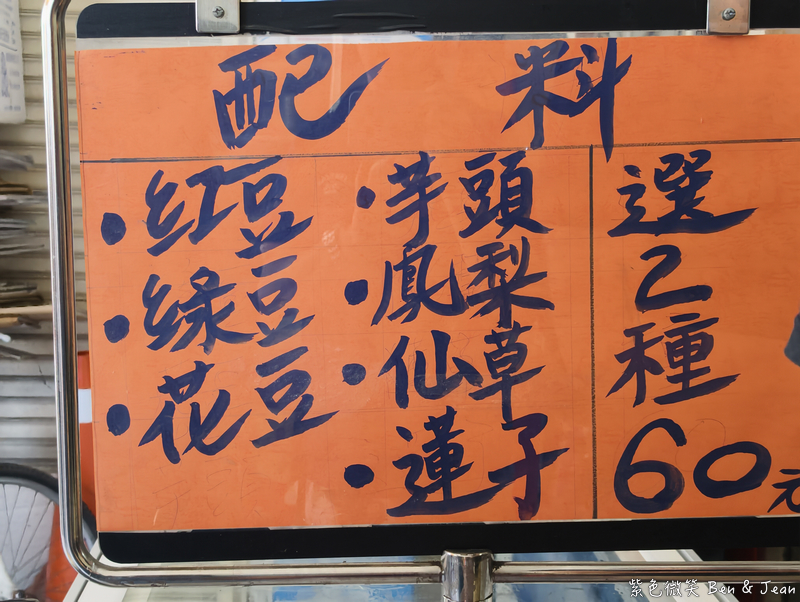 配料
・紅豆
・綠豆
・花豆
・芋頭
・鳳梨
・仙草
・蓮子
選
2
種
60元
紫色微笑 Ben & Jean